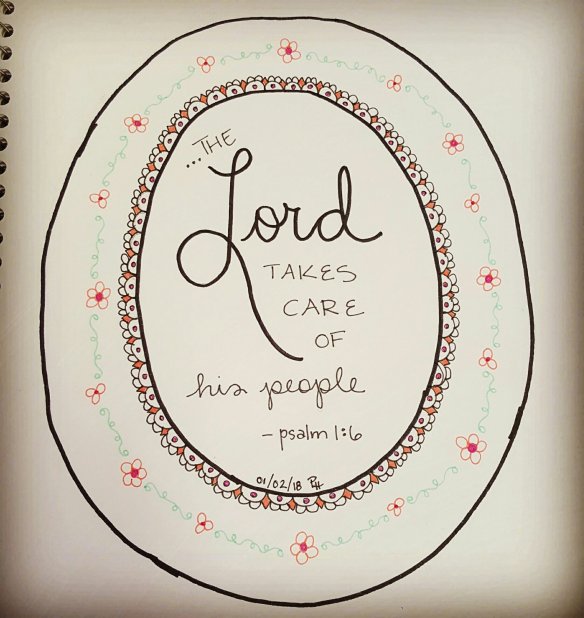 ...THE
Lord
TAKES
CARE
OF
his people
- psalm 1:6
01/02/18 PH